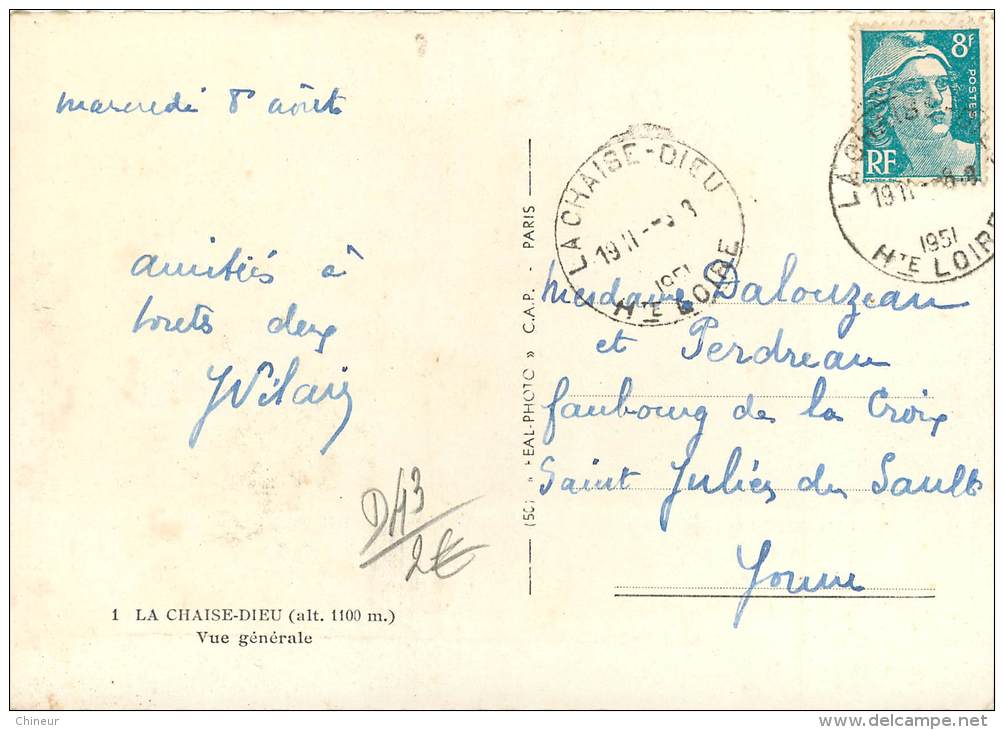 mercredi 8 août
amitiés à
toutes deux
JVilain
DH3
2€
1 LA CHAISE-DIEU (alt. 1100 m.)
Vue générale
« REAL-PHOTO » C.A.P. - PARIS
LA CHAISE-DIEU
19 H - 8-8
1951
HTE LOIRE
8F
POSTES
RF
19 H - 8-8
1951
HTE LOIRE
Mesdames Dalouzeau
et Perdreau
faubourg de la Croix
Saint Julien du Sault
Yonne
Chineur
delcampe.net